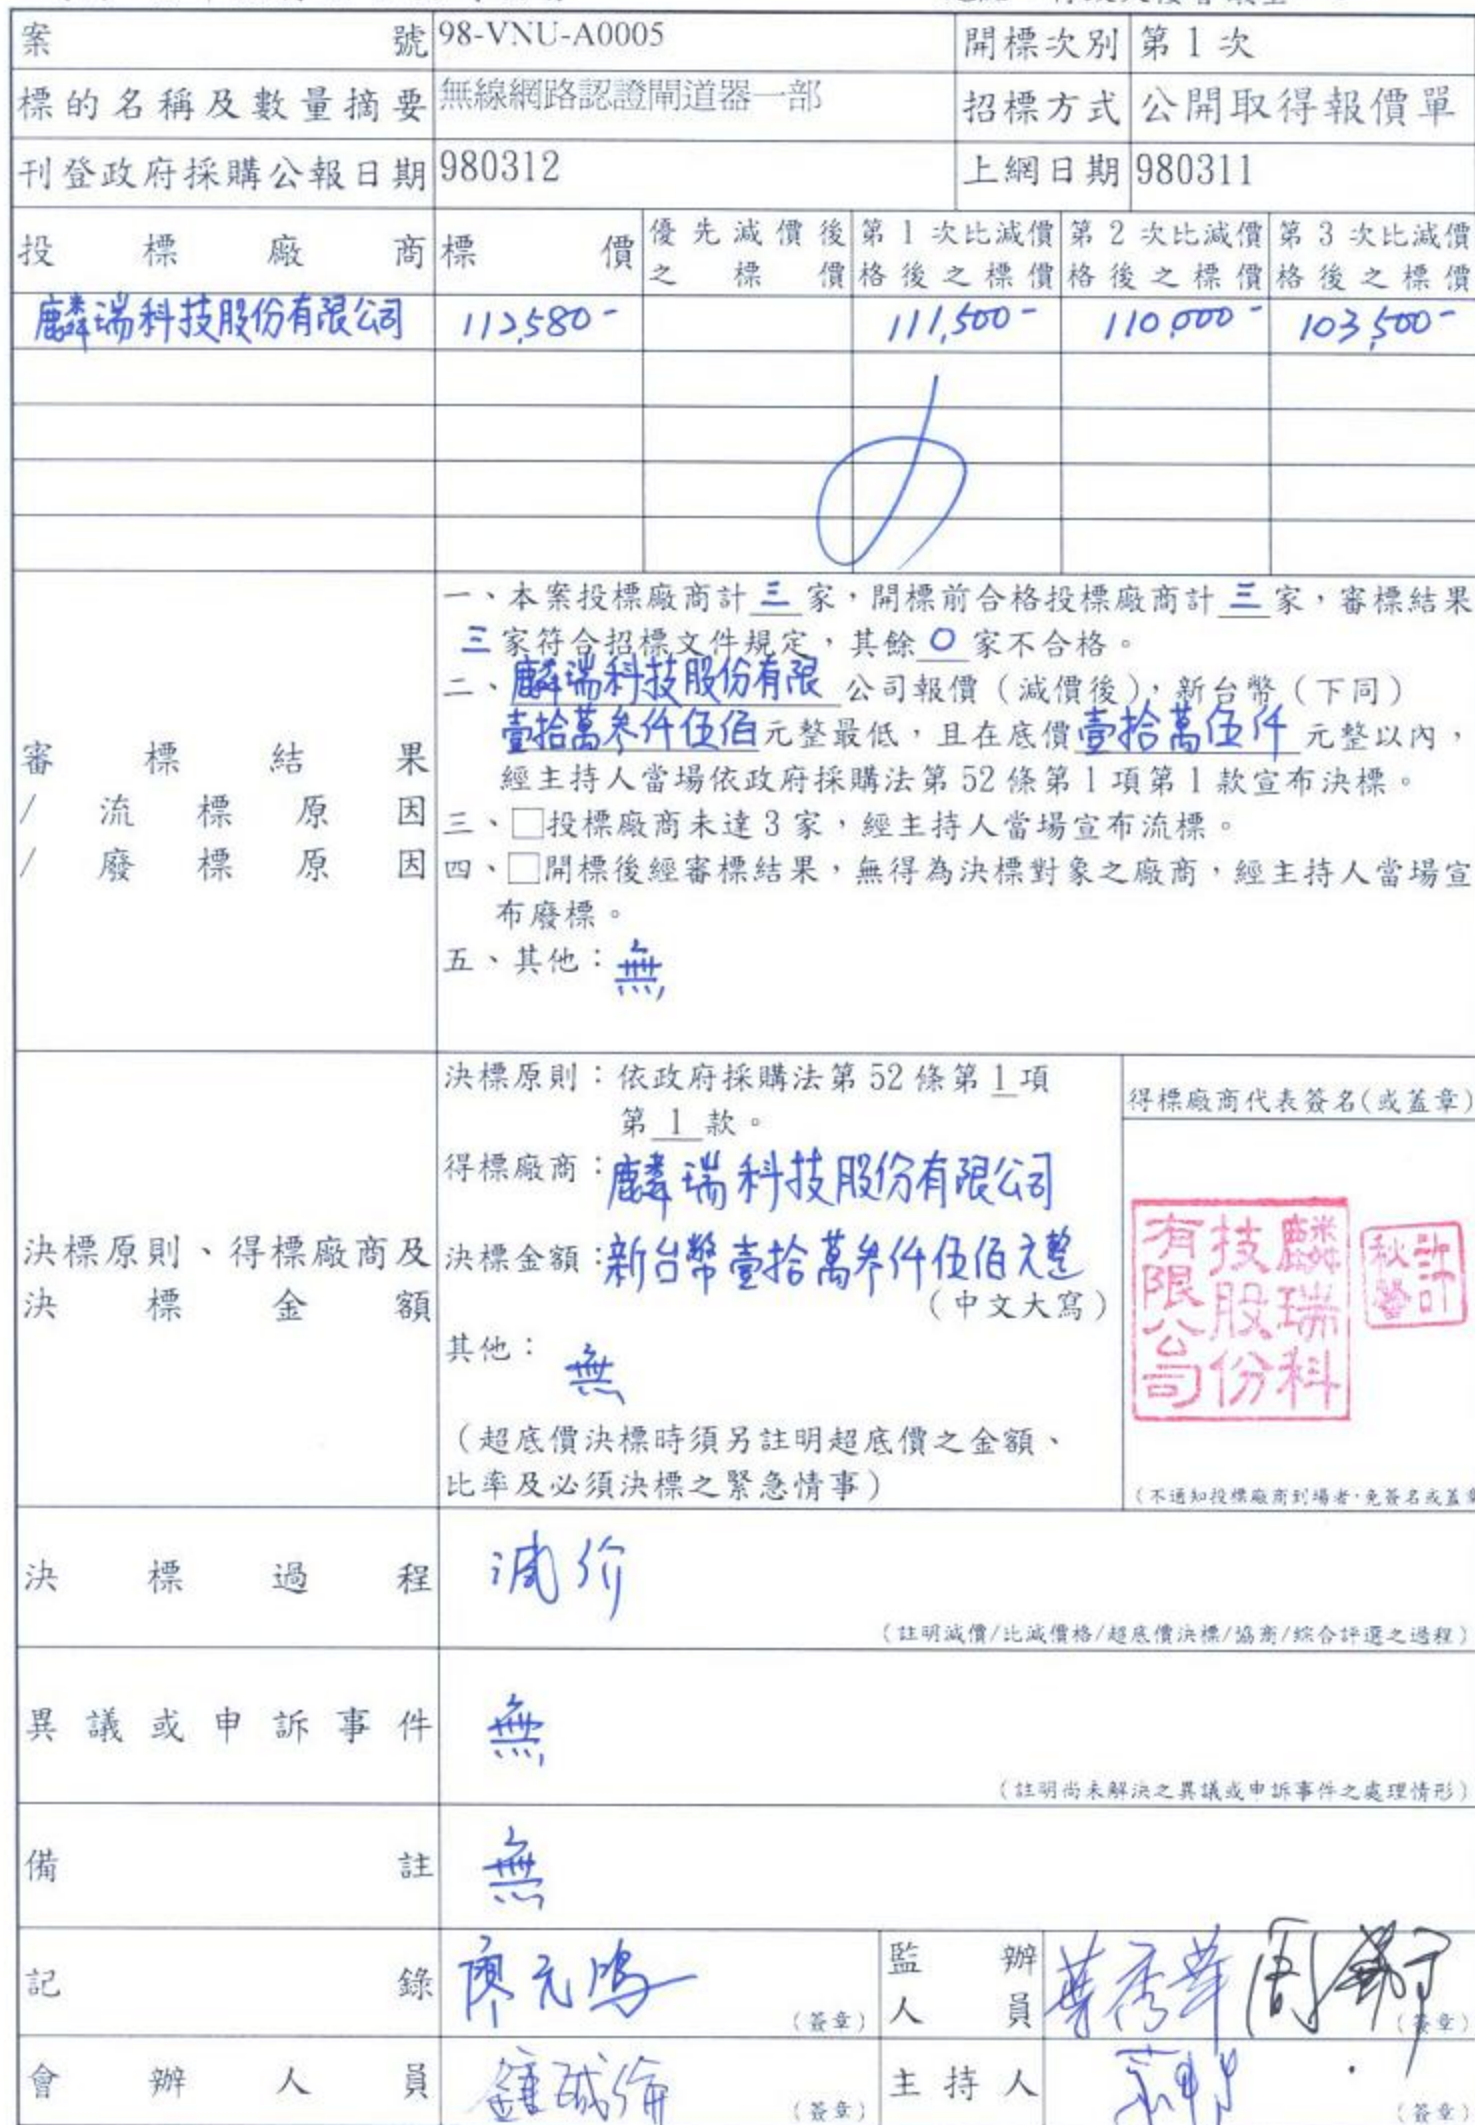 案號 98-VNU-A0005 開標次別 第 1 次
標的名稱及數量摘要 無線網路認證閘道器一部 招標方式 公開取得報價單
刊登政府採購公報日期 980312 上網日期 980311
投標廠商 標價 優先減價後之標價 第 1 次比減價格後之標價 第 2 次比減價格後之標價 第 3 次比減價格後之標價
麟瑞科技股份有限公司 112,580- 111,500- 110,000- 103,500-
審標結果
/流標原因
/廢標原因
一、本案投標廠商計三家,開標前合格投標廠商計三家,審標結果
三家符合招標文件規定,其餘0家不合格。
二、麟瑞科技股份有限公司報價(減價後),新台幣(下同)
壹拾萬參仟伍佰元整最低,且在底價壹拾萬伍仟元整以內,
經主持人當場依政府採購法第 52 條第 1 項第 1 款宣布決標。
三、□投標廠商未達 3 家,經主持人當場宣布流標。
四、□開標後經審標結果,無得為決標對象之廠商,經主持人當場宣
布廢標。
五、其他:無
決標原則、得標廠商及
決標金額
決標原則:依政府採購法第 52 條第 1 項
第 1 款。
得標廠商:麟瑞科技股份有限公司
決標金額:新台幣壹拾萬參仟伍佰元整
(中文大寫)
其他:無
(超底價決標時須另註明超底價之金額、
比率及必須決標之緊急情事)
得標廠商代表簽名(或蓋章)
麟瑞科
技股份
有限公司
(不通知投標廠商到場者,免簽名或蓋章
決標過程 減价
(註明減價/比減價格/超底價決標/協商/綜合評選之過程)
異議或申訴事件 無
(註明尚未解決之異議或申訴事件之處理情形)
備註 無
記錄 廖元鴻 (簽章) 監辦人員 葉秀華 (簽章)
會辦人員 (簽章) 主持人 (簽章)